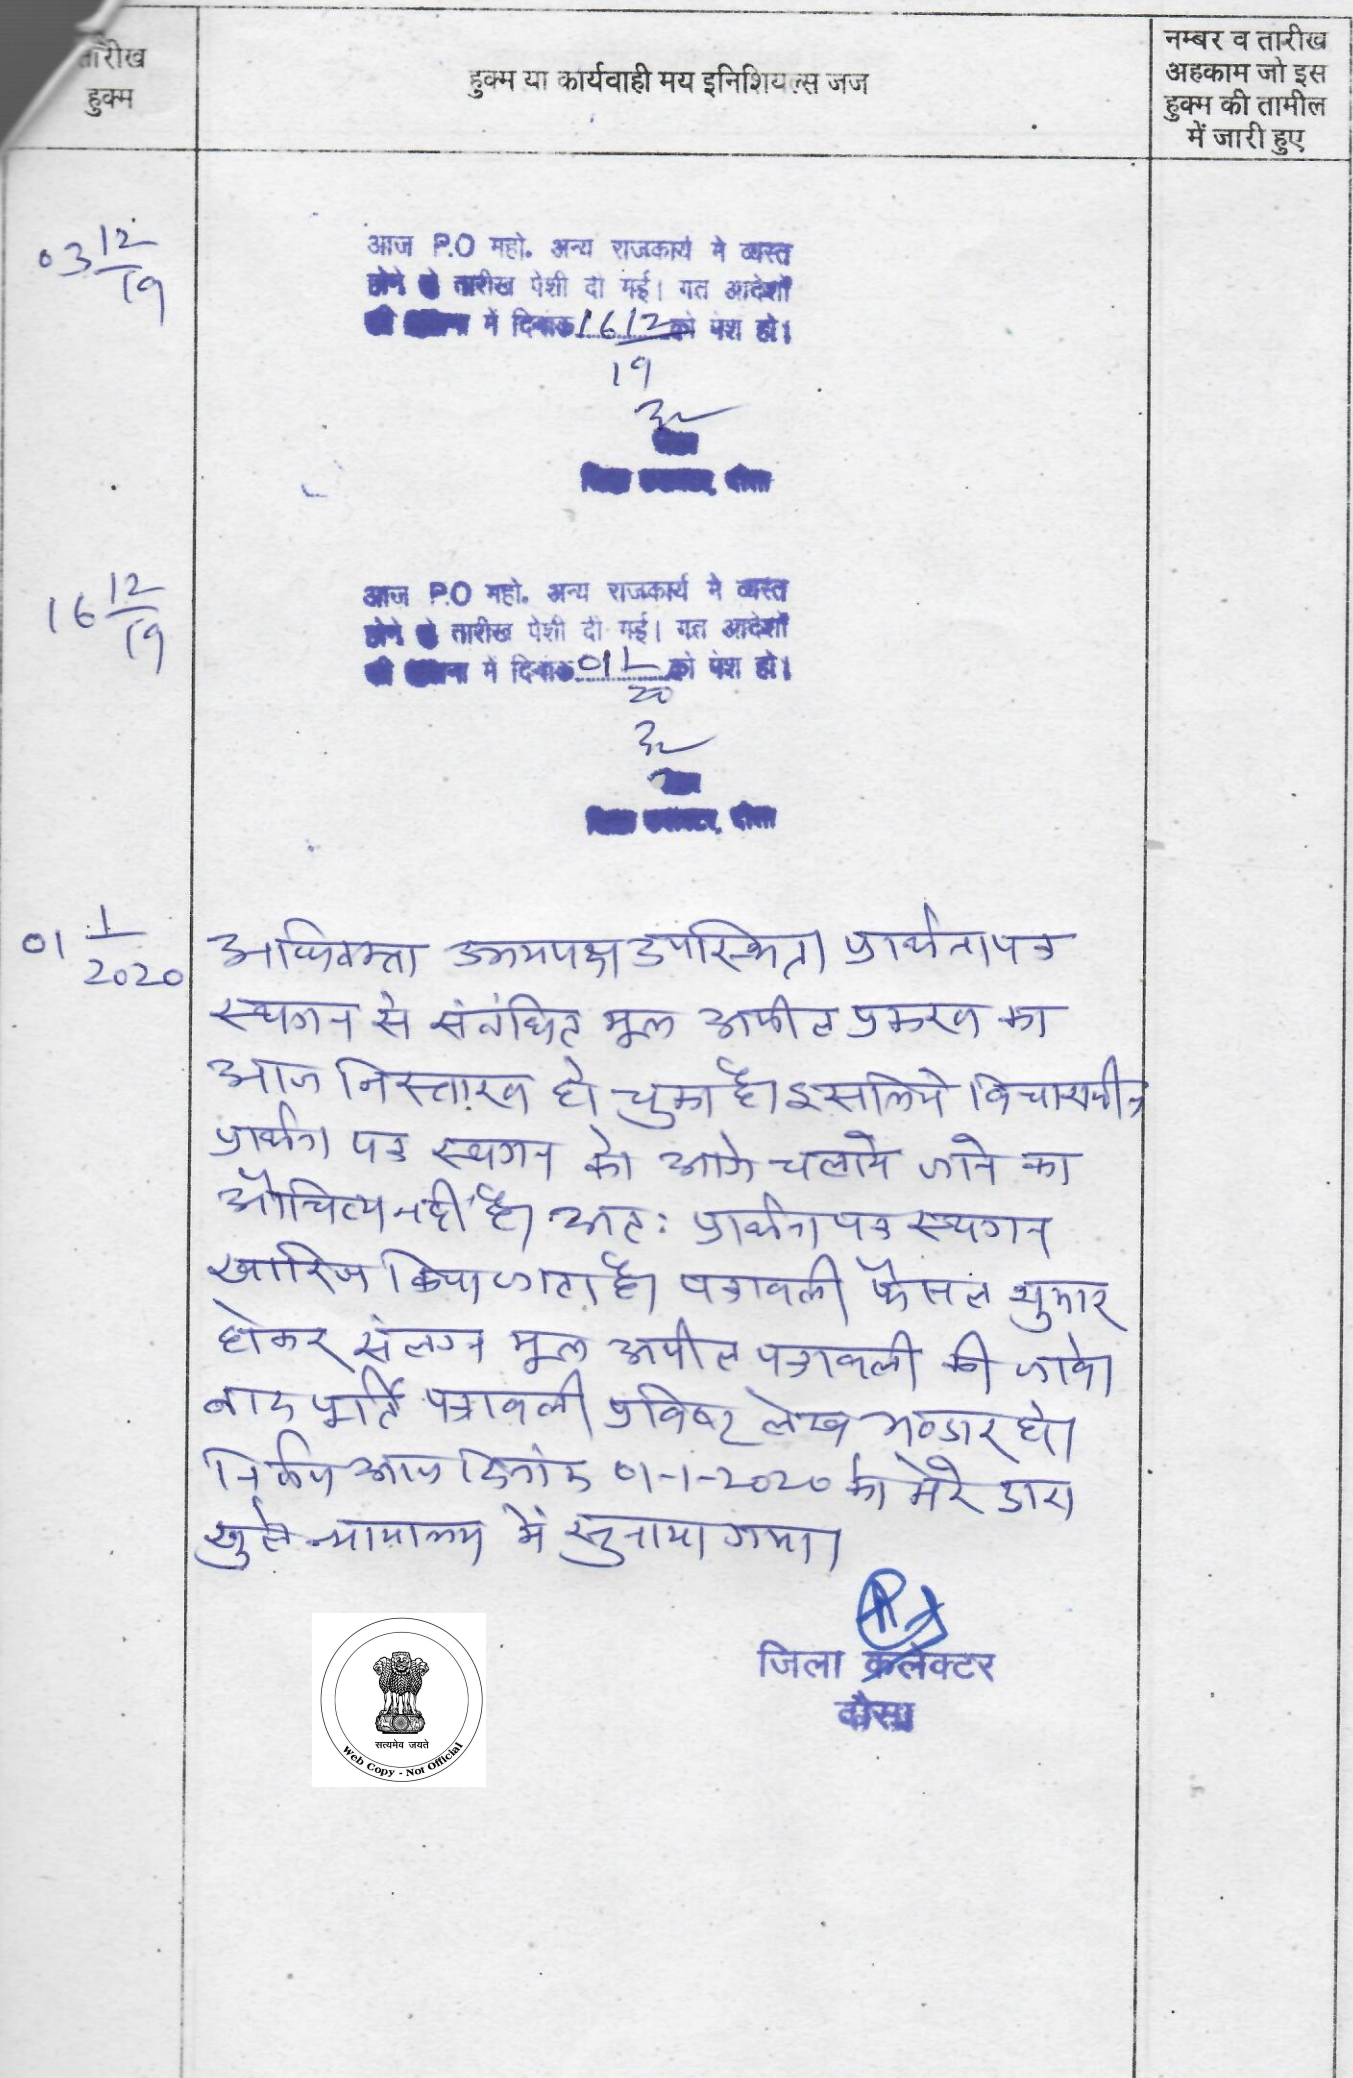 तारीख
हुक्म
हुक्म या कार्यवाही मय इनिशियल्स जज
नम्बर व तारीख
अहकाम जो इस
हुक्म की तामील
में जारी हुए
03 12/19
आज P.O महो. अन्य राजकार्य मे व्यस्त
होने से तारीख पेशी दी गई। गत आदेशों
की में दिनांक 16 12/19 को पेश हो।
जिला कलक्टर, दौसा
16 12/19
आज P.O महो. अन्य राजकार्य मे व्यस्त
होने से तारीख पेशी दी गई। गत आदेशों
की में दिनांक 01 1/20 को पेश हो।
जिला कलक्टर, दौसा
01 1/2020
अधिवक्ता उभयपक्ष उपस्थित। प्रार्थना पत्र
स्थगन से संबंधित मूल अपील प्रकरण का
आज निस्तारण हो चुका है। इसलिये विचाराधीन
प्रार्थना पत्र स्थगन को आगे चलाये जाने का
औचित्य नहीं है। अतः प्रार्थना पत्र स्थगन
खारिज किया जाता है। पत्रावली फैसल शुमार
होकर संलग्न मूल अपील पत्रावली की जावे।
बाद पूर्ति पत्रावली प्रविष्ट लेख भण्डार हो।
निर्णय आज दिनांक 01-1-2020 को मेरे द्वारा
खुले न्यायालय में सुनाया गया।
जिला कलेक्टर
दौसा
सत्यमेव जयते
Web Copy - Not Official